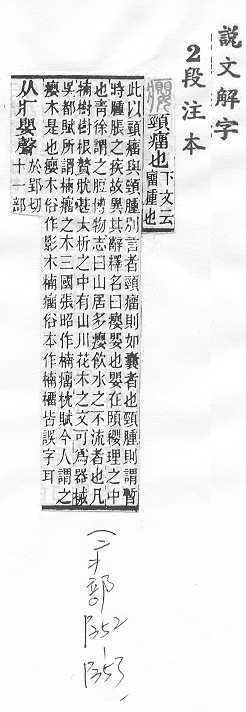 說文解字
2段注本
癭 頸瘤也 下文云
瘤腫也
此以頸瘤與頸腫別言者頸瘤則如囊者也頸腫則謂暫
時腫脹之疾故異其辭釋名曰癭嬰也嬰在頤纓理之中
也青徐謂之脰博物志曰山居多癭飲水之不流者也凡
楠樹樹根贅肬甚大析之中有山川花木之文可爲器械
吳都賦所謂楠瘤之木三國張昭作楠瘤枕賦今人謂之
癭木是也癭木俗作影木楠瘤俗本作楠橊皆誤字耳
从疒嬰聲 於郢切
十一部
部
P352
-
P353